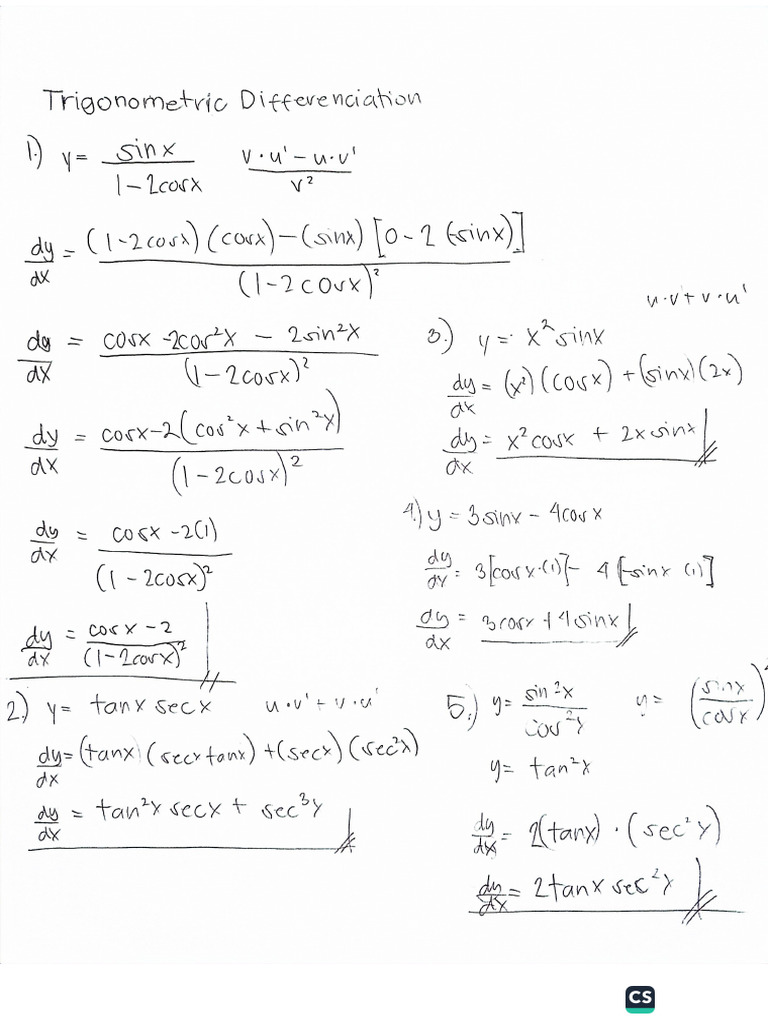 Trigonometric Differenciation
1.) y = sinx / 1-2cosx    v·u' - u·v' / v²
dy/dx = (1-2cosx)(cosx)-(sinx)[0-2(-sinx)] / (1-2cosx)²
dy/dx = cosx -2cos²x - 2sin²x / (1-2cosx)²
dy/dx = cosx-2(cos²x+sin²x) / (1-2cosx)²
dy/dx = cosx -2(1) / (1-2cosx)²
dy/dx = cosx-2 / (1-2cosx)²
2.) y = tanx secx    u·v' + v·u'
dy/dx = (tanx)(secxtanx)+(secx)(sec²x)
dy/dx = tan²x secx + sec³x
u·v'+v·u'
3.) y = x²sinx
dy/dx = (x²)(cosx)+(sinx)(2x)
dy/dx = x²cosx + 2xsinx
4.) y = 3sinx - 4cosx
dy/dx = 3[cosx·(1)]- 4[-sinx (1)]
dy/dx = 3cosx+4sinx
5.) y = sin²x / cos²x    y = (sinx / cosx)²
y = tan²x
dy/dx = 2(tanx)·(sec²x)
dy/dx = 2tanx sec²x
CS